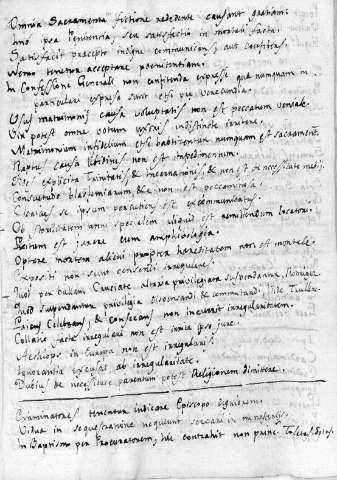 Omnia Sacramenta fictione recedente causant gratiam.
Imo pœnitentia, seu satisfactio in mortali facta.
Satisfacit præcepto indigne communicans, aut confitens.
Nemo tenetur acceptare pœnitentiam.
In Confessione Generali non confitenda expresse quæ nunquam in
particulari expressa sunt etsi per verecundia.
Usus matrimonij causa voluptatis non est peccatum veniale.
Vir potest omne votum uxoris indistincte irritare.
Matrimonium infidelium etsi baptizentur nunquam est sacramentum.
Raptus causa libidinis non est impedimentum.
Fides explicita Trinitatis, & Incarnationis, & non est de necessitate medij.
Consuetudo blasphemiarum &c. non est peccaminosa.
Clericus se ipsum percutiens est excommunicatus.
Ob sterilitatem anni specialem aliquid est remittendum locatori.
Licitum est jurare cum amphibologia.
Optare mortem alicui propter hæreditatem non est mortale.
Expositi non sunt censendi irregulares.
Quod per bullam Cruciatæ altaria privilegiata suspendantur,
Quod suspendantur privilegia dispensandi & commutandi. Vide
Laicus Celebrans, & consecrans non incurrit irregularitatem.
Collatio facta irregulari non est irrita ipso jure.
Æthiops in Europa non est irregularis.
Ignorantia excusat ab irregularitate.
Dubius de necessitate parentum potest Religionem dimittere.
Examinatores tenentur indicare Episcopo digniorem.
Vidua in sequestratione nequeunt servari in monasterijs.
In Baptismo per Procuratorem, hic contrahit non principalis.